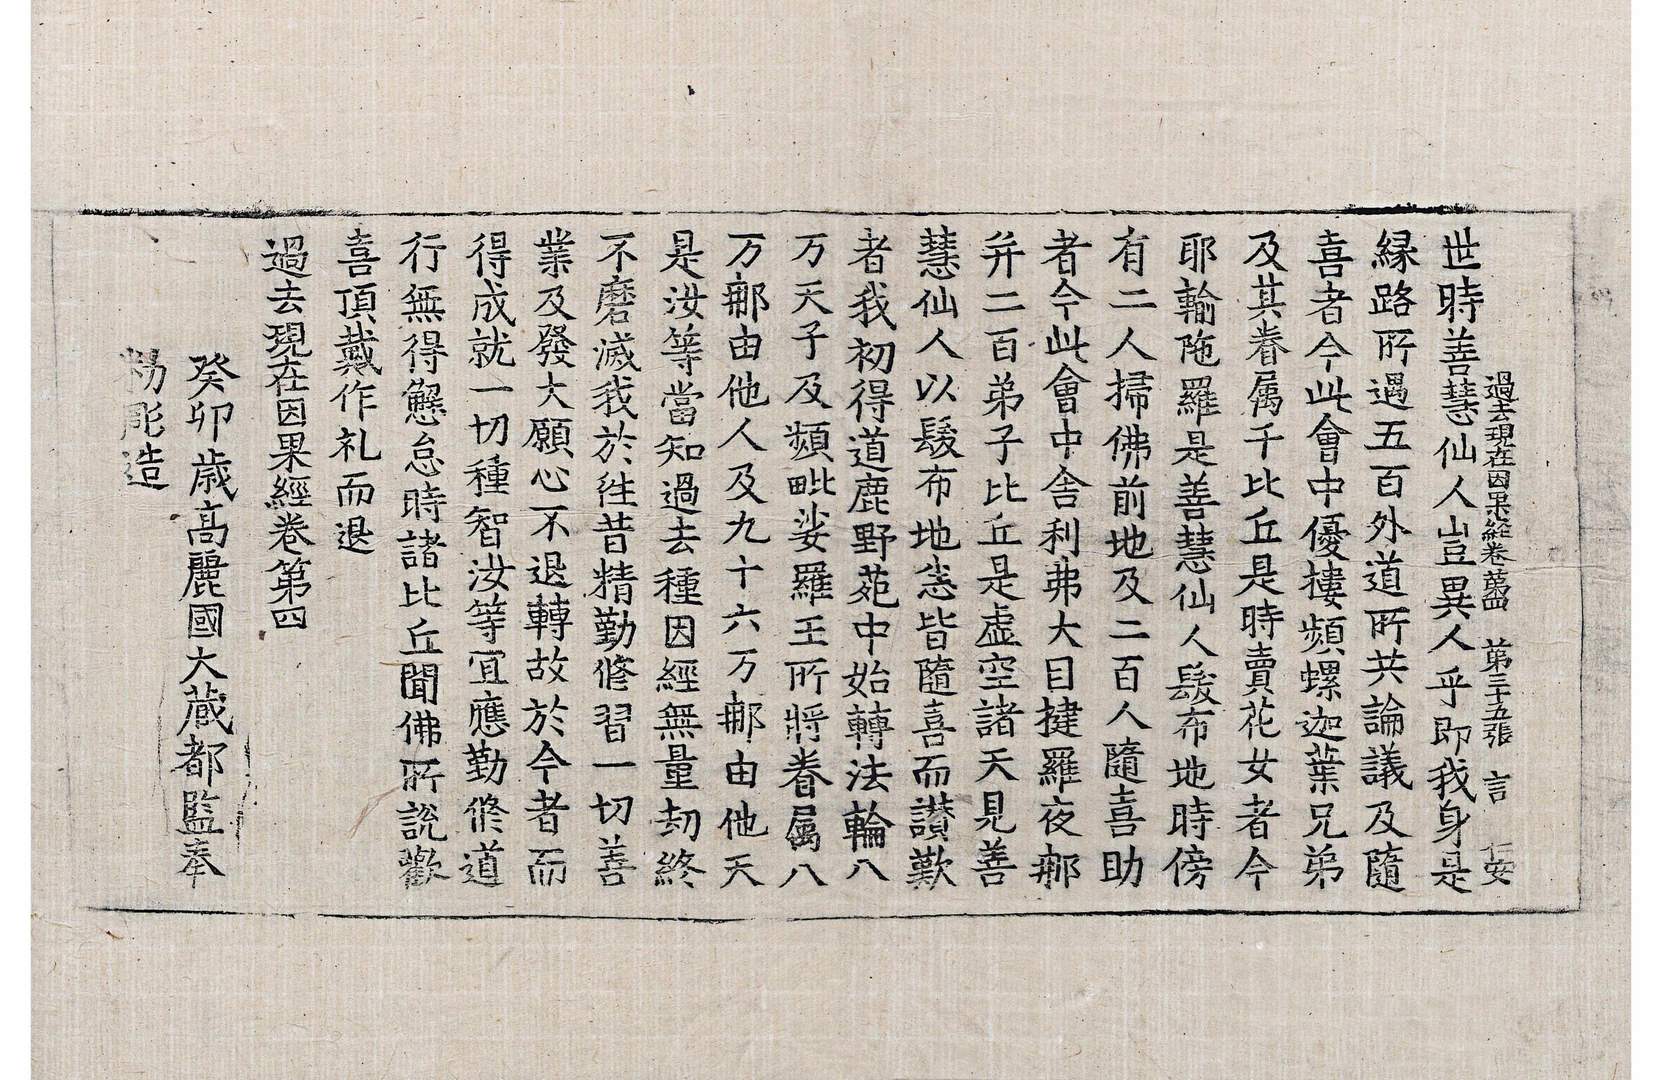 過去現在因果経卷第四　第三十五張　言　仁安
世時善慧仙人豈異人乎即我身是
縁路所遇五百外道所共論議及隨
喜者今此會中優樓頻螺迦葉兄弟
及其眷属千比丘是時賣花女者今
耶輸陁羅是善慧仙人髮布地時傍
有二人掃佛前地及二百人隨喜助
者今此會中舍利弗大目揵羅夜那
并二百弟子比丘是虛空諸天見善
慧仙人以髮布地悉皆隨喜而讃歎
者我初得道鹿野苑中始轉法輪八
万天子及頻毗娑羅王所將眷屬八
万那由他人及九十六万那由他天
是汝等當知過去種因經無量劫終
不磨滅我於徃昔精勤修習一切善
業及發大願心不退轉故於今者而
得成就一切種智汝等宜應勤修道
行無得懈怠時諸比丘聞佛所說歡
喜頂戴作礼而退
過去現在因果經卷第四
癸卯歲高麗國大藏都監奉
勑彫造